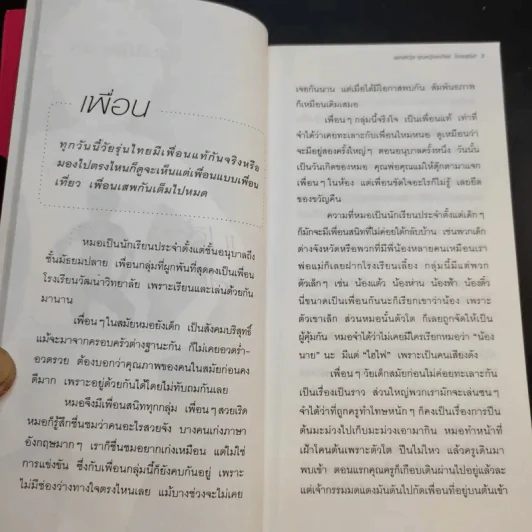 เพื่อน
ทุกวันนี้วัยรุ่นไทยมีเพื่อนแท้กันจริงหรือ
มองไปตรงไหนก็ดูจะเห็นแต่เพื่อนแบบเพื่อน
เที่ยว เพื่อนเสพกันเต็มไปหมด
หมอเป็นนักเรียนประจำตั้งแต่ชั้นอนุบาลถึง
ชั้นมัธยมปลาย เพื่อนกลุ่มที่ผูกพันที่สุดคงเป็นเพื่อน
โรงเรียนวัฒนาวิทยาลัย เพราะเรียนและเล่นด้วยกัน
มานาน
เพื่อนๆ ในสมัยหมอยังเด็ก เป็นสังคมบริสุทธิ์
แม้จะมาจากครอบครัวต่างฐานะกัน ก็ไม่เคยอวดร่ำ-
อวดรวย ต้องบอกว่าคุณภาพของคนในสมัยก่อนคง
ดีมาก เพราะอยู่ด้วยกันได้โดยไม่ทับถมกันเลย
หมอจึงมีเพื่อนสนิททุกกลุ่ม เพื่อนๆ สวยเริด
หมอก็รู้สึกชื่นชมว่าคนอะไรสวยจัง บางคนเก่งภาษา
อังกฤษมากๆ เราก็ชื่นชมอยากเก่งเหมือน แต่ไม่ใช่
การแข่งขัน ซึ่งกับเพื่อนกลุ่มนี้ก็ยังคบกันอยู่ เพราะ
ไม่มีช่องว่างทางใจตรงไหนเลย แม้บางช่วงจะไม่เคย
เจอกันนาน แต่เมื่อได้มีโอกาสพบกัน สัมพันธภาพ
ก็เหมือนเดิมเสมอ
เพื่อนๆ กลุ่มนี้จริงใจ เป็นเพื่อนแท้ เท่าที่
จำได้ว่าเคยทะเลาะกับเพื่อนไหมหนอ ดูเหมือนว่า
จะมีอยู่สองครั้งใหญ่ๆ ตอนอนุบาลครั้งหนึ่ง วันนั้น
เป็นวันเกิดของหมอ คุณพ่อคุณแม่ให้ตุ๊กตามาแจก
เพื่อนๆ ในห้อง แต่เพื่อนขัดใจอะไรก็ไม่รู้ เลยยึด
ของขวัญคืน
ความที่หมอเป็นนักเรียนประจำตั้งแต่เด็กๆ
ก็มักจะมีเพื่อนสนิทที่ไม่ค่อยได้กลับบ้าน เช่นพวกเด็ก
ต่างจังหวัดหรือพวกที่มีพี่น้องหลายคนเหมือนเรา
พ่อแม่ก็เลยฝากโรงเรียนเลี้ยง กลุ่มนี้มีแต่พวก
ตัวเล็กๆ เช่น น้องแต้ว น้องห่าน น้องฟ้า น้องติ๋ว
นี่ขนาดเป็นเพื่อนกันนะก็เรียกเขาว่าน้อง เพราะ
ตัวเขาเล็ก ส่วนหมอนั้นตัวโต ก็เลยถูกจัดให้เป็น
ผู้คุ้มกัน หมอจำได้ว่าไม่เคยมีใครเรียกหมอว่า “น้อง
นาย” นะ มีแต่ “ไฮไฟ” เพราะเป็นคนเสียงดัง
เพื่อนๆ วัยเด็กสมัยก่อนไม่ค่อยทะเลาะกัน
เป็นเรื่องเป็นราว ส่วนใหญ่พวกเรามักจะเล่นซนๆ
จำได้ว่าที่ถูกครูทำโทษหนักๆ ก็คงเป็นเรื่องการปีน
ต้นมะม่วงไปเก็บมะม่วงเอามากิน หมอทำหน้าที่
เฝ้าโคนต้นเพราะตัวโต ปีนไม่ไหว แล้วครูเดินมา
พบเข้า ตอนแรกคุณครูก็เกือบเดินผ่านไปอยู่แล้วละ
แต่เจ้ากรรมมดแดงมันดันไปกัดเพื่อนที่อยู่บนต้นเข้า